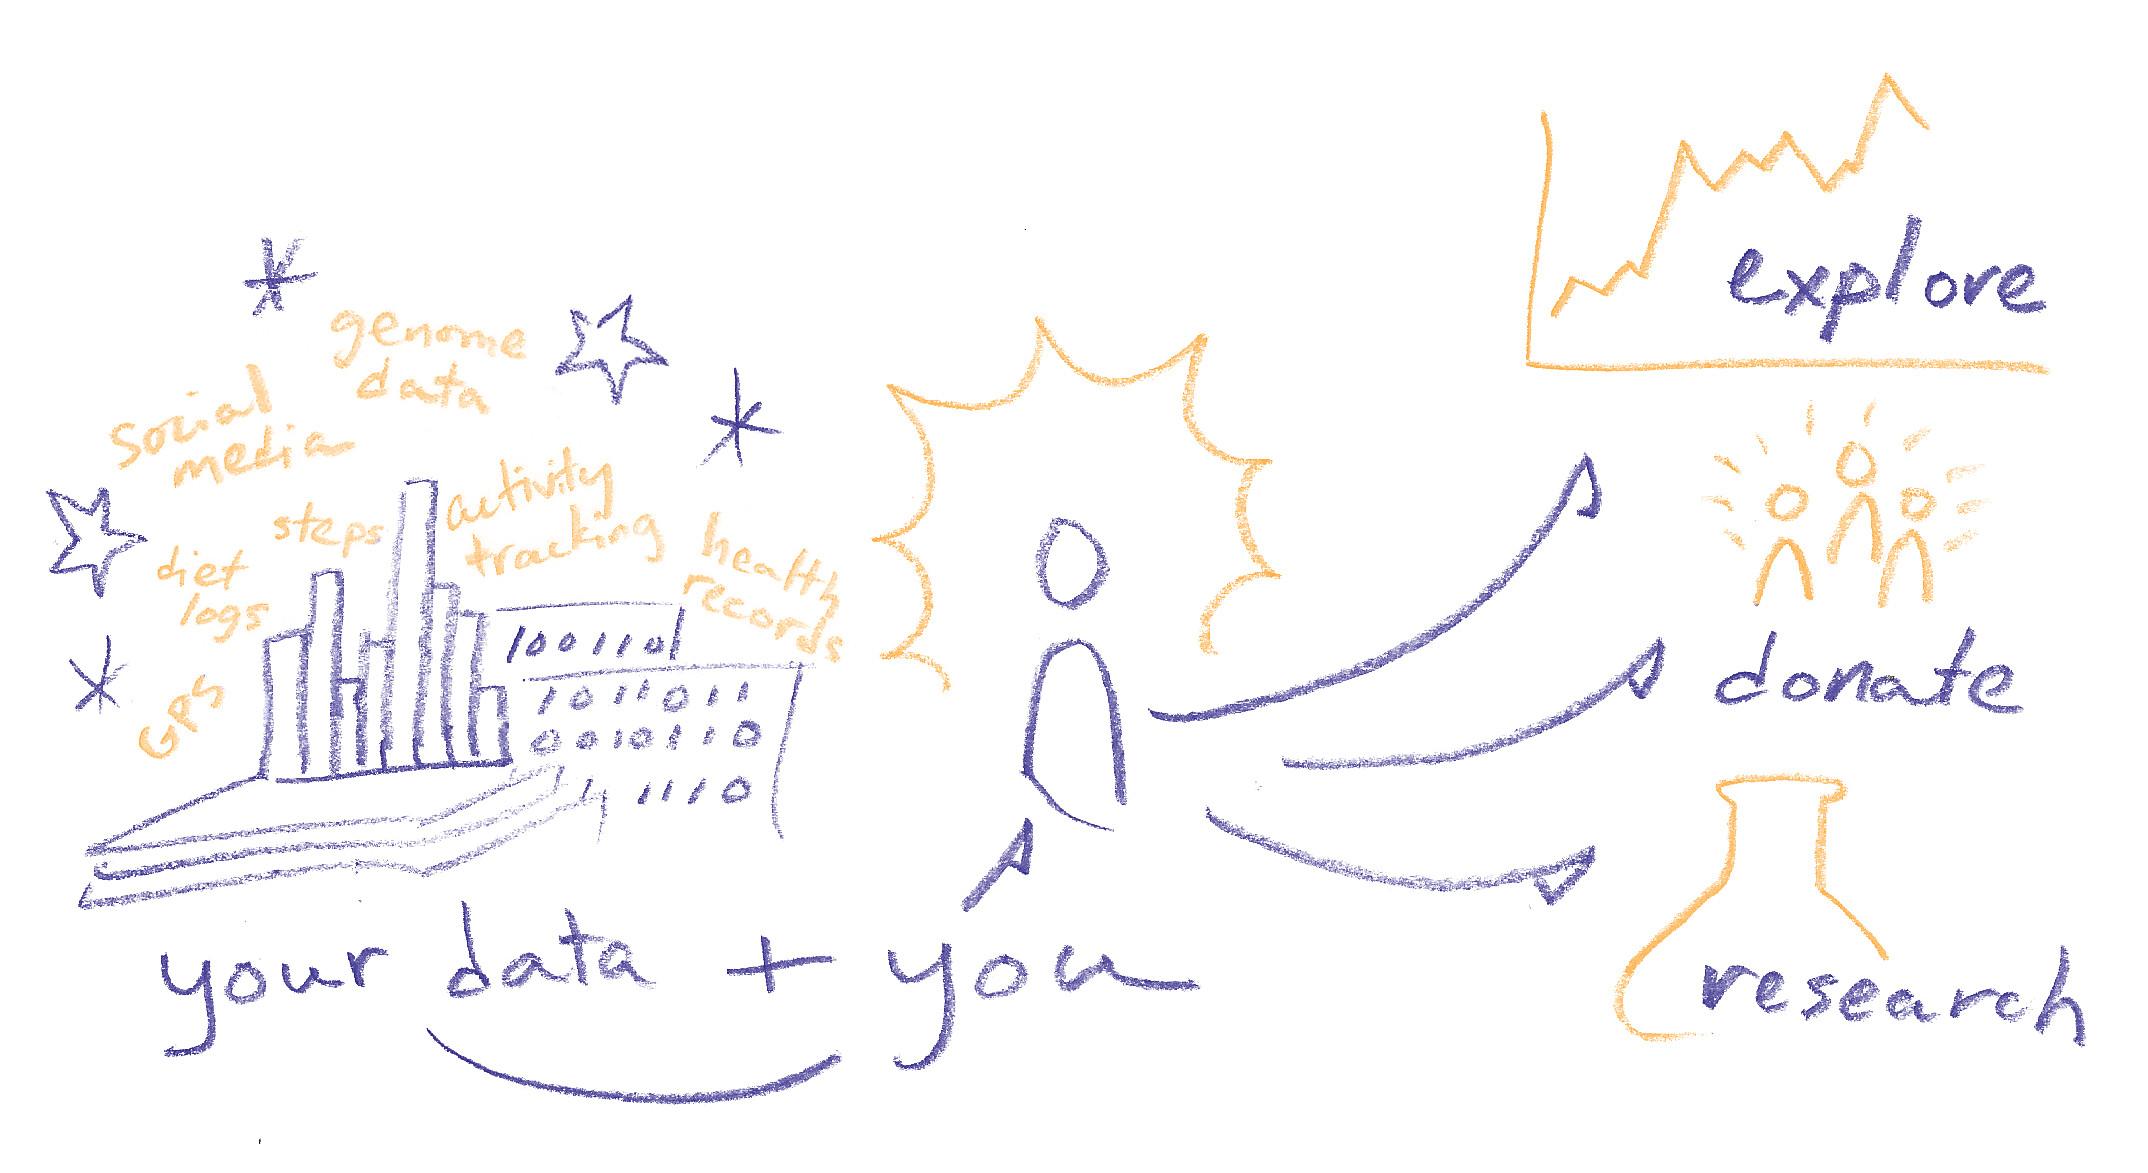 genome
data
social
media
activity
tracking
steps
health
records
diet
logs
GPS
1001101
1011011
0010110
11110
your data + you
explore
donate
research